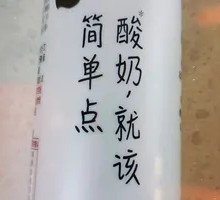 酸奶*,就该
简单点